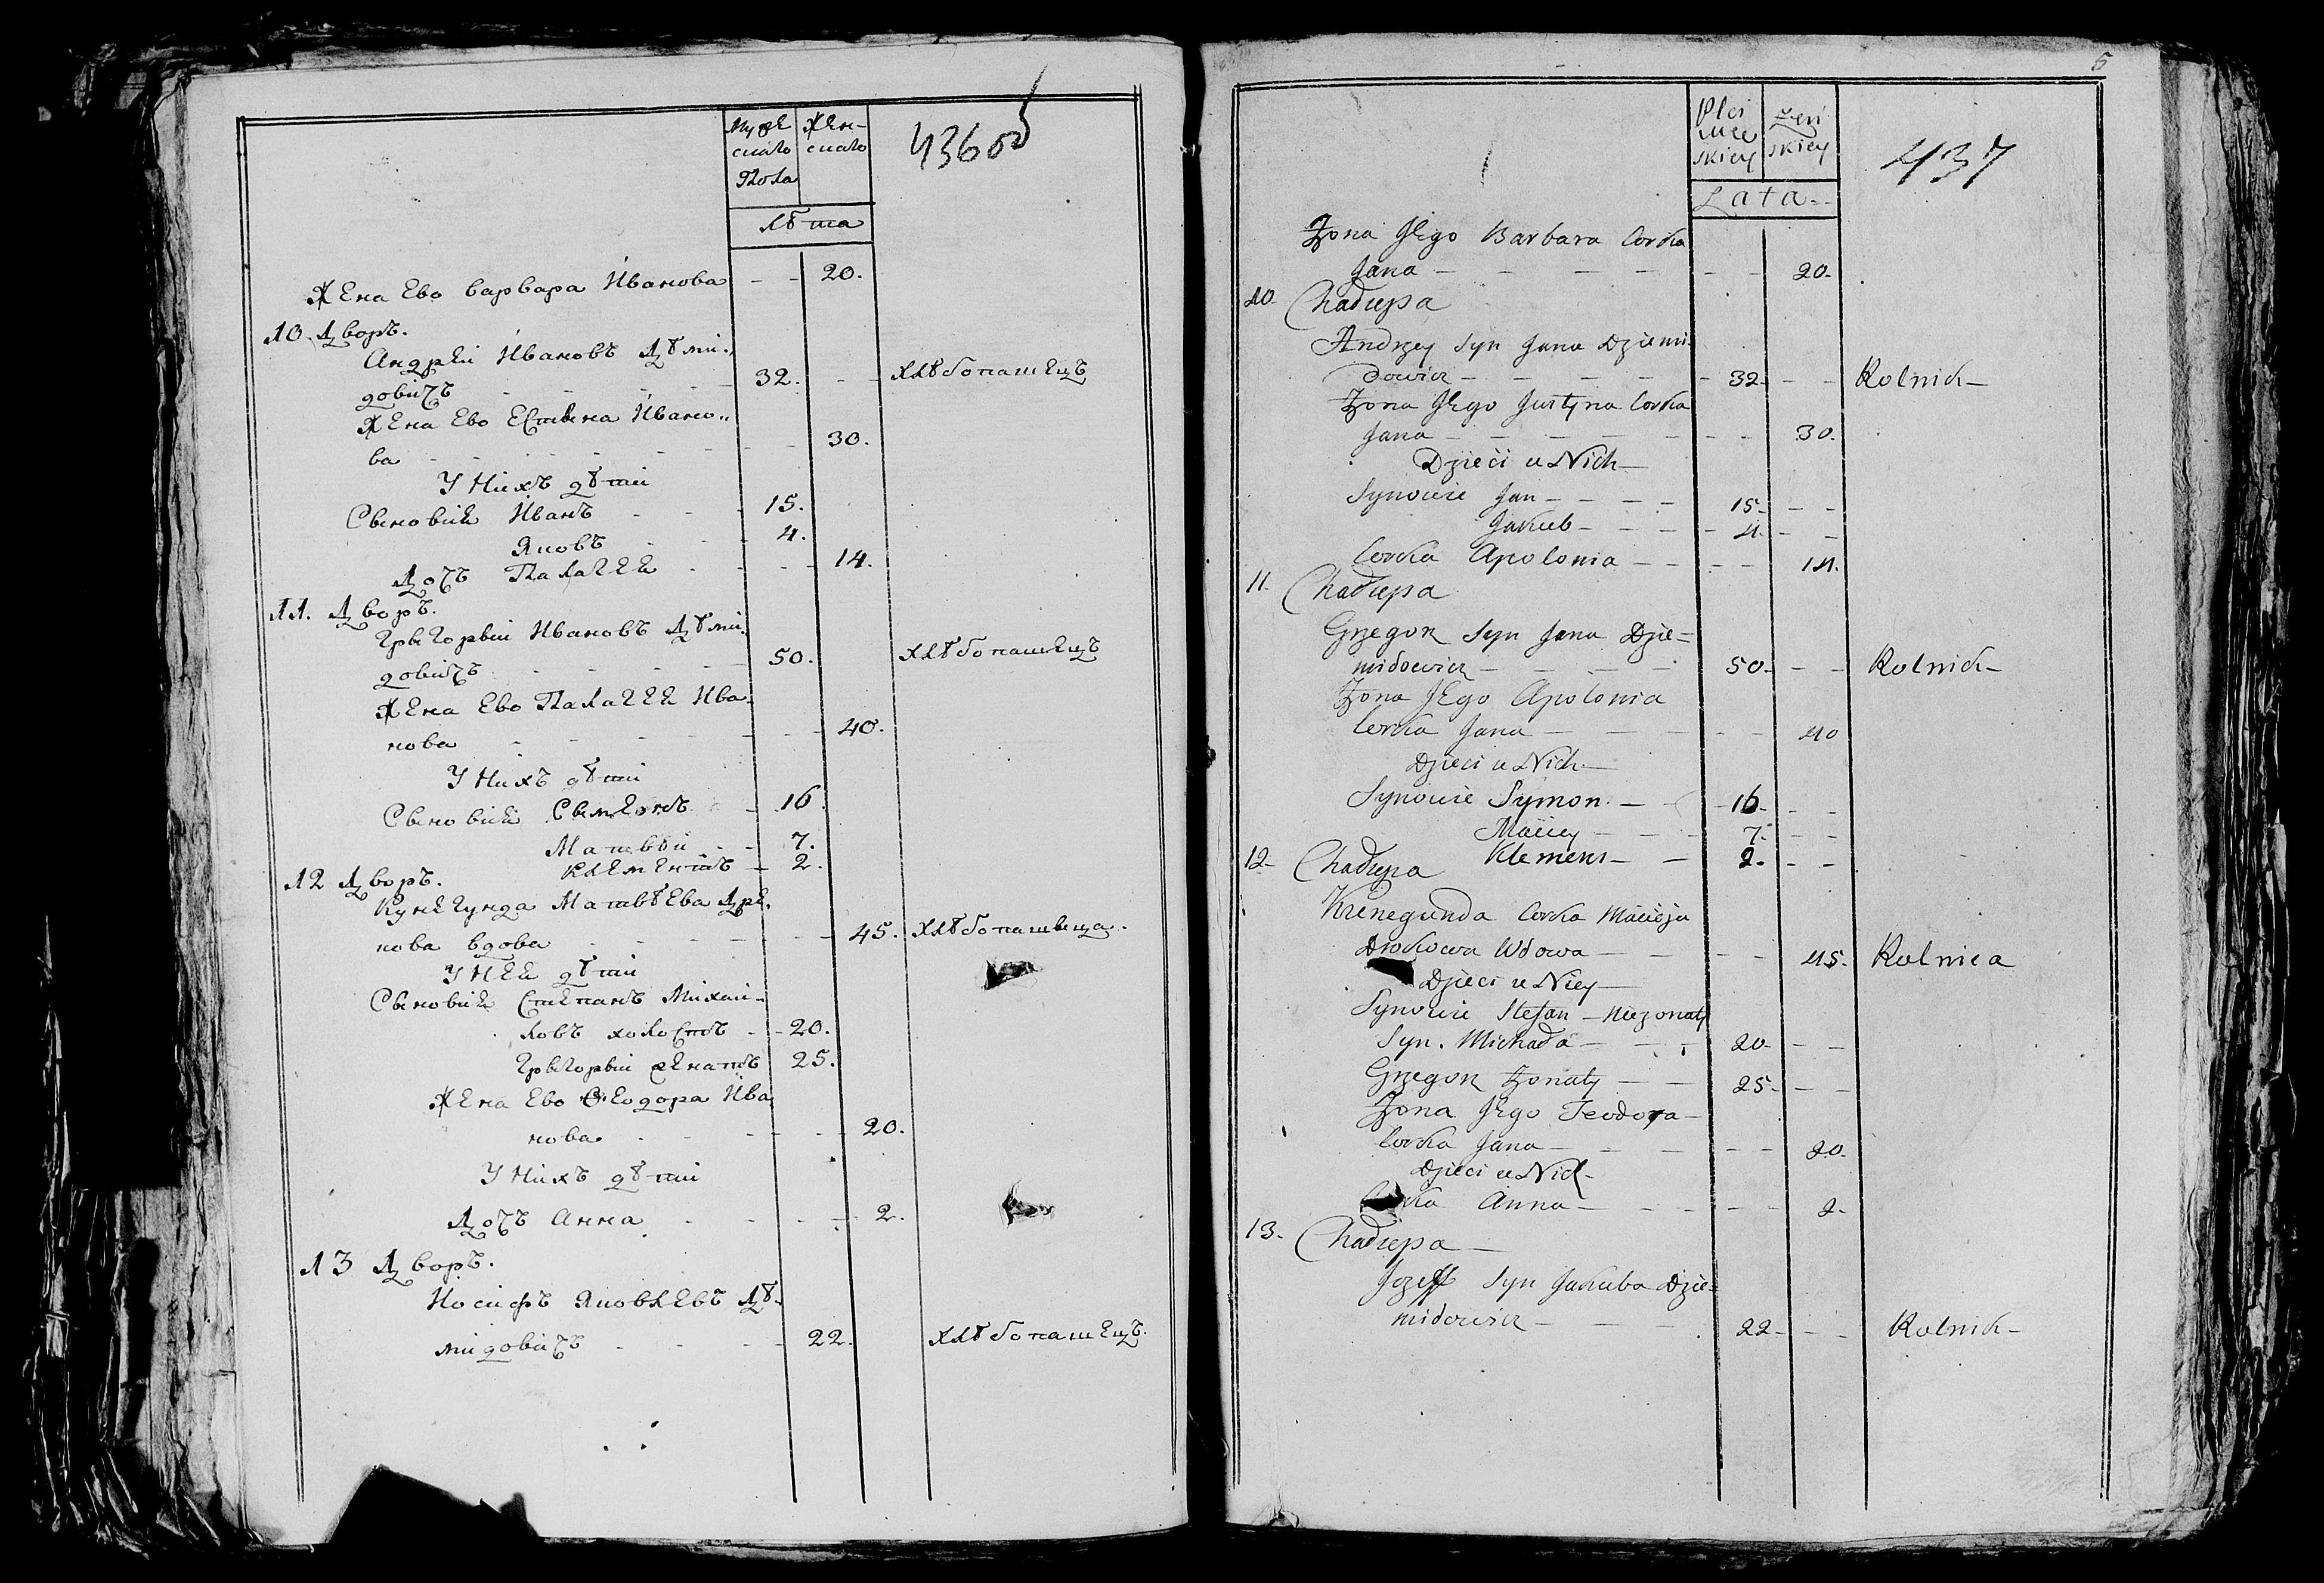 Мужескаго Пола
Женскаго
436 об
Лѣта
Жена Ево Варвара Иванова - - 20.
10. Дворъ.
Андрѣй Ивановъ Дѣми-
довичъ - - - - 32. - - хлѣбопашецъ
Жена Ево Естына Ивано-
ва - - - - - - 30.
У Нихъ дѣти
Сыновии Иванъ - - - 15.
Яковъ - - - 4.
Дочь Палагея - - - - 14.
11. Дворъ.
Грыгорыи Ивановъ Дѣми-
довичъ - - - - 50. хлѣбопашецъ
Жена Ево Палагея Ива-
нова - - - - - - 40.
У Нихъ дѣти
Сыновии Сымеонъ - 16.
Матвѣй - - 7.
Клементъ - 2.
12 Дворъ.
Кунегунда Матвѣева
вдова - - - - - 45. хлѣбопашыца.
У Ней дѣти
Сыновии Степанъ Михаи-
ловъ холостъ - - 20.
Грыгорыи женатъ 25.
Жена Ево Ѳеодора Ива
нова - - - - - 20.
У Нихъ дѣти
Дочь Анна - - - - 2.
13 Дворъ.
Иосифъ Яковлевъ Дѣ-
мидовичъ - - - - 22. хлѣбопашецъ.
5
Płci męskiey
Żeńskiey
437
Lata--
Żona Jego Barbara Corka
Jana - - - - - - 20-
10- Chałupa
Andrzey Syn Jana Dziemi-
dowicz - - - - - 32- - - Rolnik-
Żona Jego Justyna Corka
Jana - - - - - - - 30.
Dzieci u Nich-
Synowie Jan - - - - 15- - -
Jakub - - - - 4- - -
Corka Apolonia - - - - 14.
11. Chałupa
Grzegorz Syn Jana Dzie=
midowicz - - - - 50- - - Rolnik-
Żona Jego Apolonia
Corka Jana - - - - - 40
Dzieci u Nich-
Synowie Symon - - 16- - -
Maciey - - - 7- - -
Klemens - - 2. - -
12- Chałupa
Kunegunda Corka Macieja
Wdowa - - - - 45. Rolnica
Dzieci u Niey-
Synowie Stefan - Nieżonaty
Syn. Michała - - - 20- - -
Grzegorz Żonaty - - 25- - -
Żona Jego Teodora-
Corka Jana - - - - - 20.
Dzieci u Nich-
Corka Anna - - - - - 2-
13. Chałupa-
Jozeff Syn Jakuba Dzie=
midowicz - - - 22- - - Rolnik-